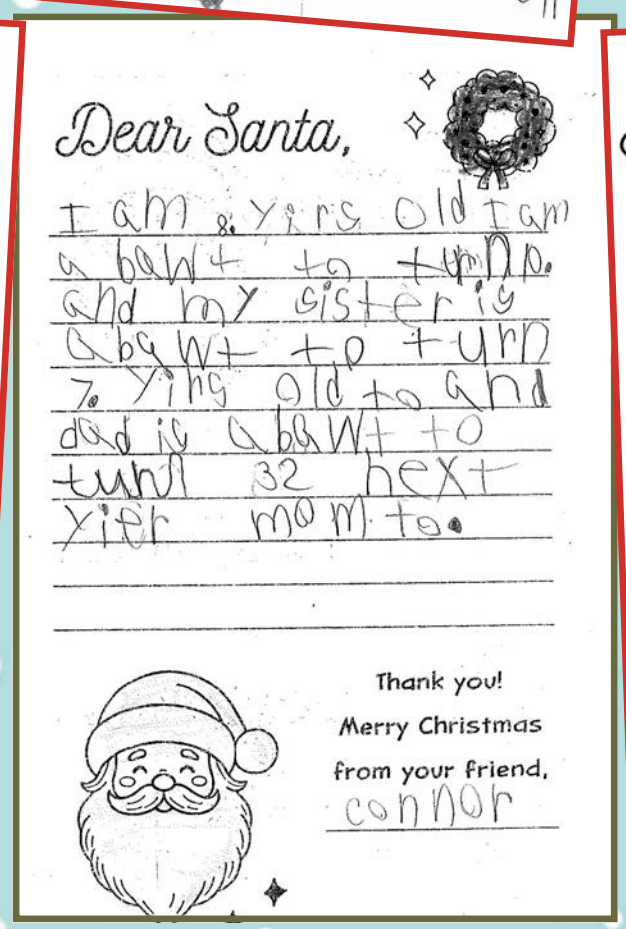 Dear Santa,
I am 8. yirs old I am
a bawt to turn p.
and my sister is
abawt to turn
7. yirs old to and
dad is abawt to
turn 32 next
yier mom to.
Thank you!
Merry Christmas
from your friend,
connor